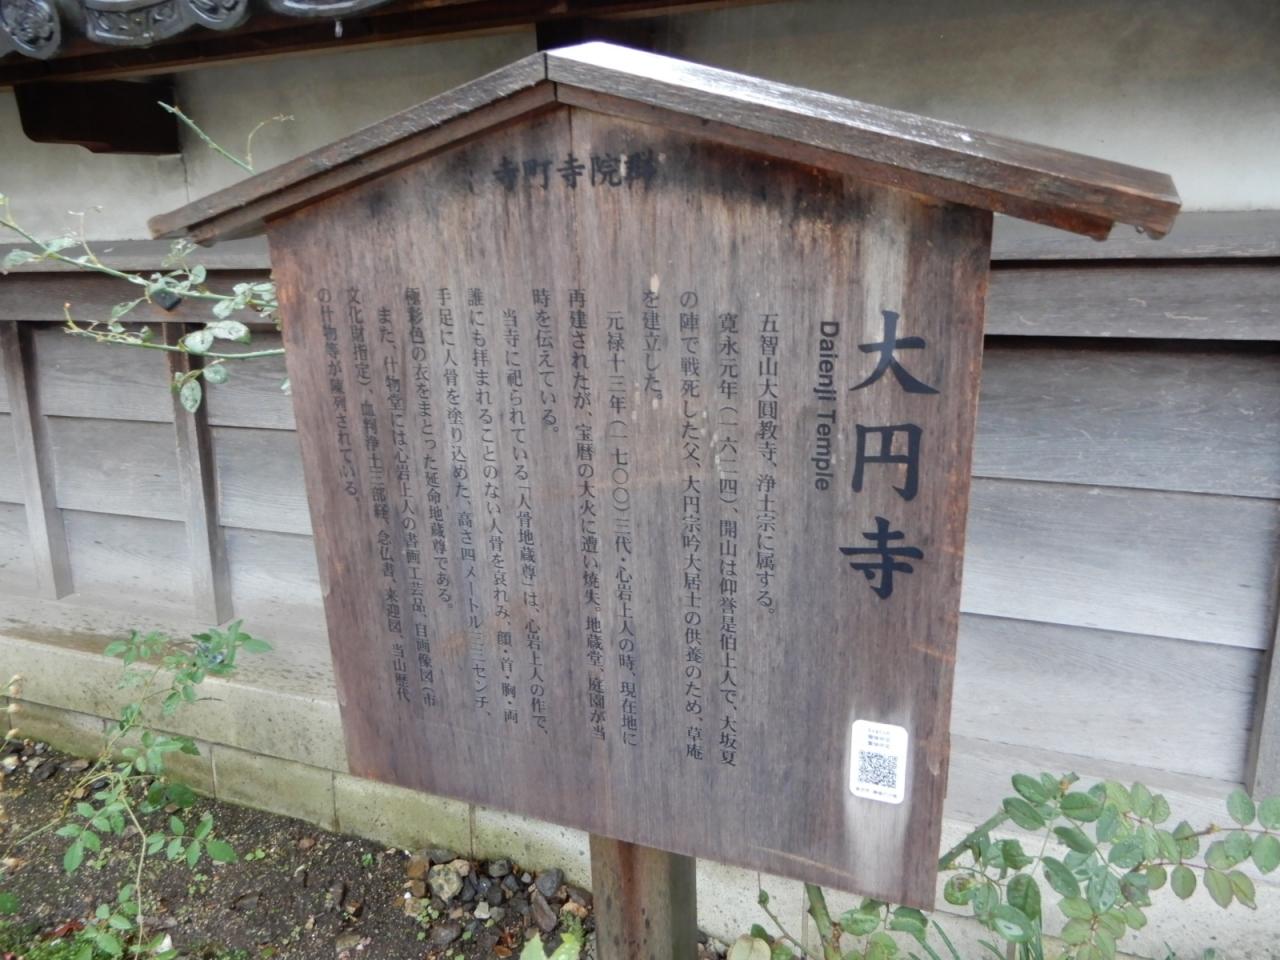 寺町寺院群
大円寺
Daienji Temple
五智山大圓教寺、浄土宗に属する。
寛永元年(一六二四)、開山は仰誉是伯上人で、大坂夏
の陣で戦死した父、大円宗吟大居士の供養のため、草庵
を建立した。
元禄十三年(一七〇〇)三代・心岩上人の時、現在地に
再建されたが、宝暦の大火に遭い焼失。地蔵堂、庭園が当
時を伝えている。
当寺に祀られている「人骨地蔵尊」は、心岩上人の作で、
誰にも拝まれることのない人骨を哀れみ、顔・首・胸・両
手足に人骨を塗り込めた、高さ四メートル三三センチ、
極彩色の衣をまとった延命地蔵尊である。
また、什物堂には心岩上人の書画工芸品、自画像図(市
文化財指定)、血判浄土三部経、念仏書、来迎図、当山歴代
の什物等が陳列されている。